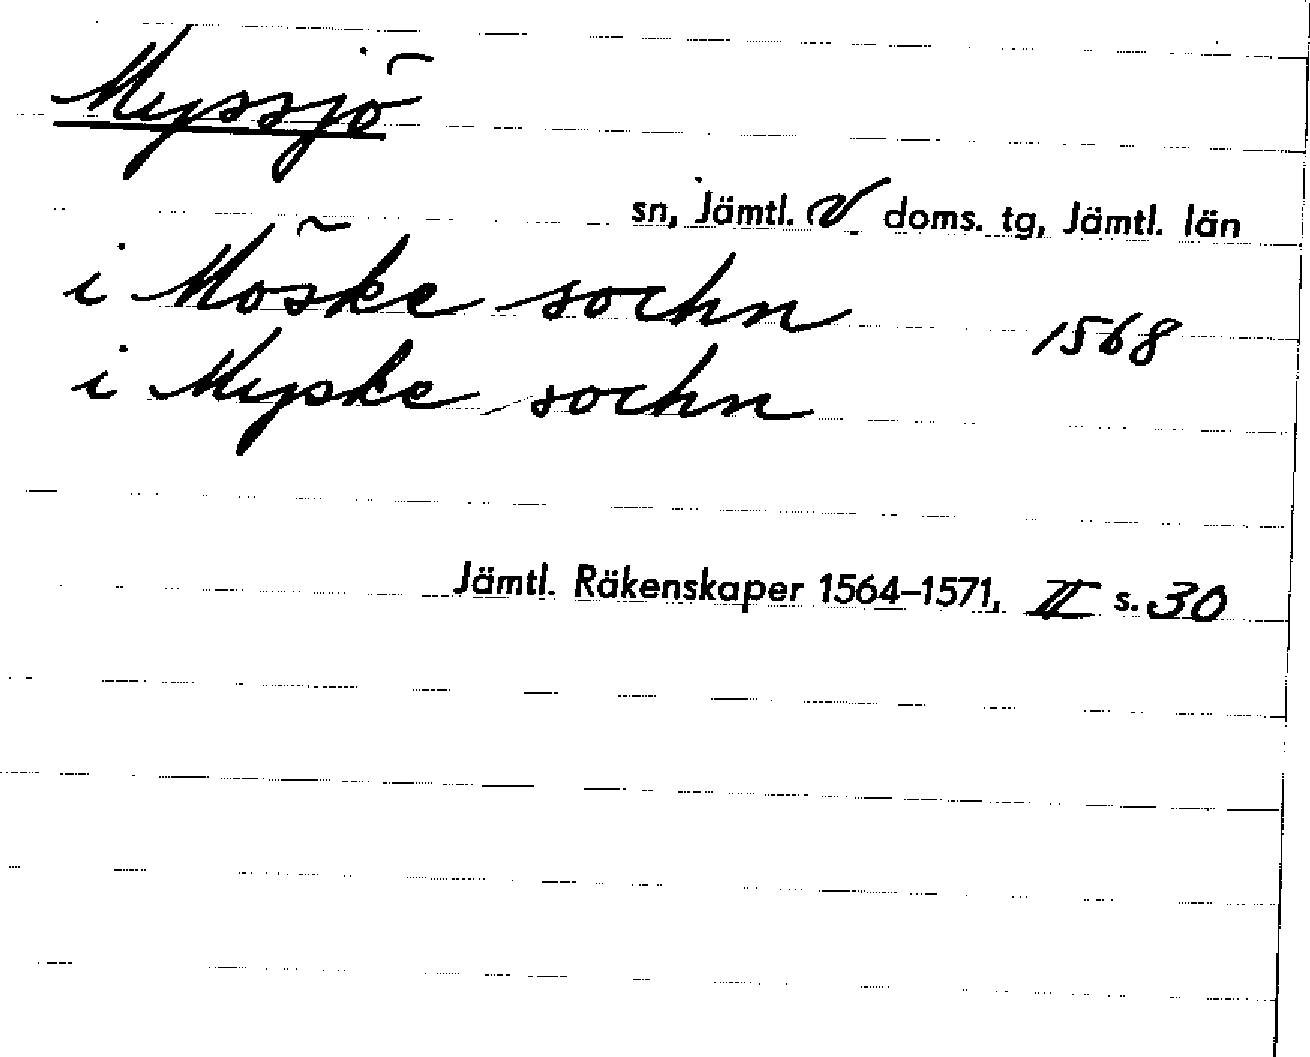 Myssjö
sn, Jämtl. V. doms. tg, Jämtl. län
i Möske sochn 1568
i Myske sochn
Jämtl. Räkenskaper 1564–1571, II s. 30